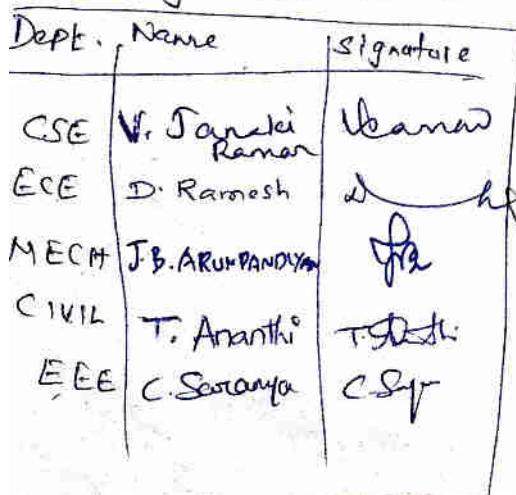 Dept. Name Signature
CSE V. Janaki
Raman
ECE D. Ramesh
MECH J.B. ARUNPANDIYAN
CIVIL T. Ananthi
EEE C. Saranya